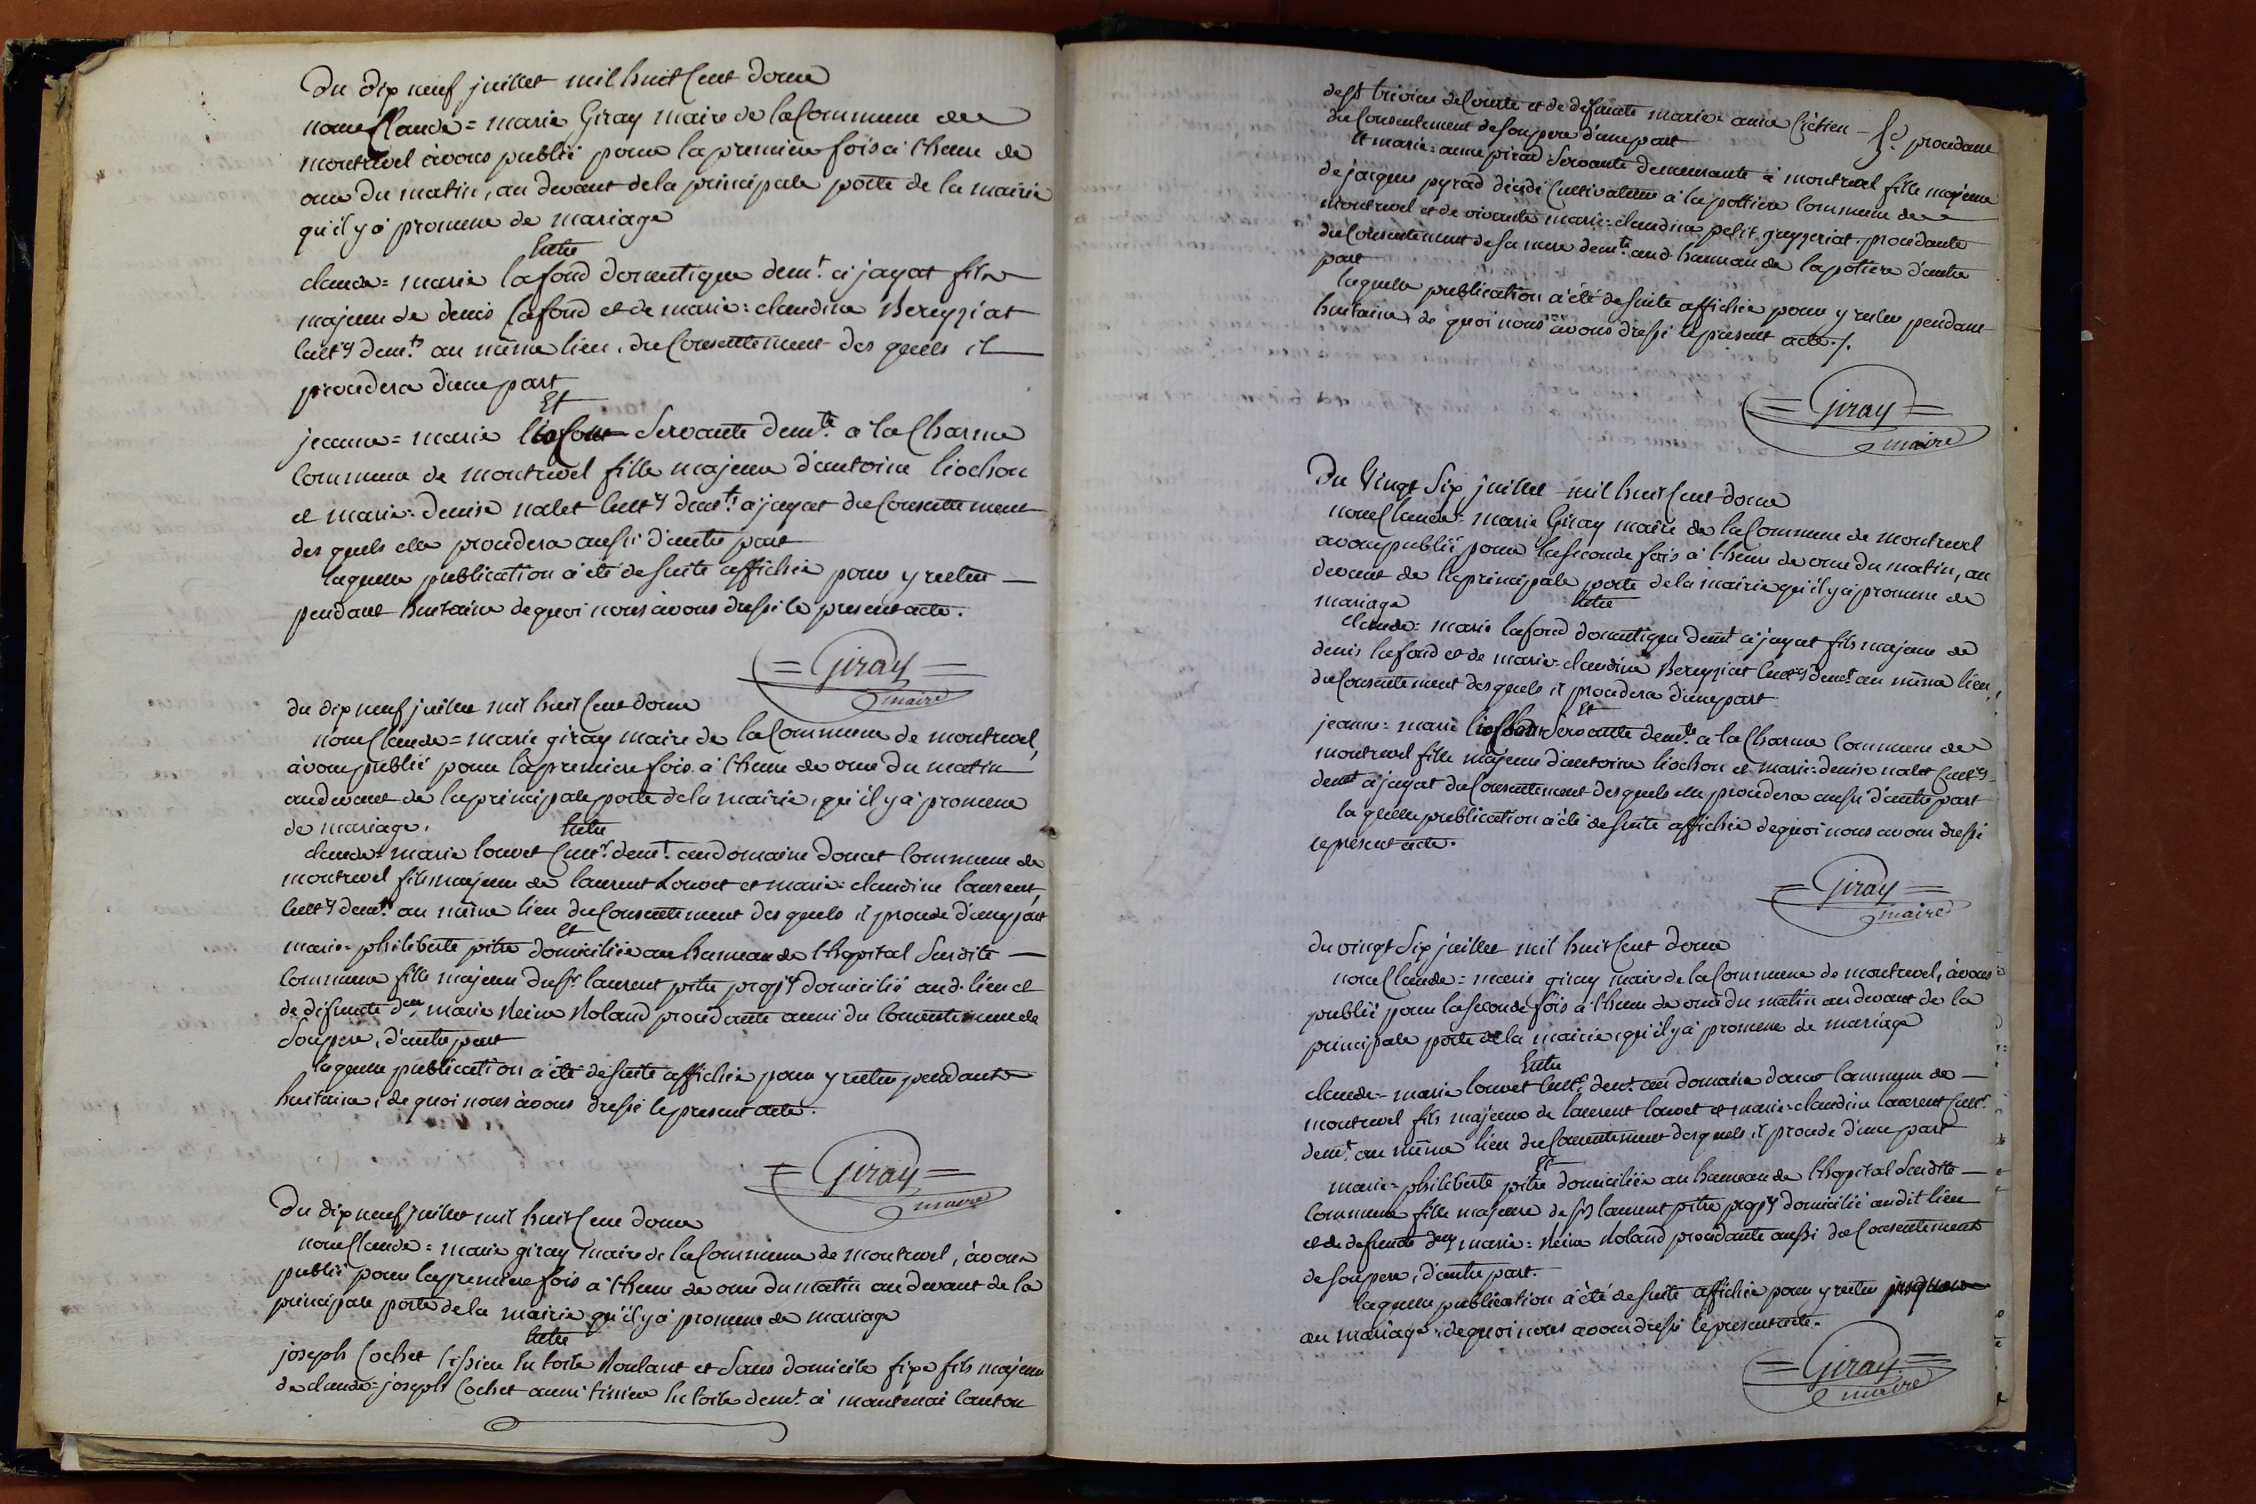 Du dix neuf juillet mil huit Cent douze
nous Claude = marie Giray maire de la Commune de
montrevel avons publié pour la premiere fois à l'heure de
onze du matin, au devant de la principale porte de la mairie
qu'il y à promesse de mariage
Entre
claude = marie lafond domestique demt. à jayat fils
majeur de denis lafond et de marie = claudine Bereyziat
Cultrs demts au même lieu, du Consentement des quels il
procedera d'une part
Et
jeanne = marie Servante demte. à la Charme
Commune de montrevel fille majeure d'antoine liochon
et marie = denise nalet Cultrs demts. à jayat du Consentement
des quels elle procedera aussi d'autre part
laquelle publication à été desuite affichée pour y rester
pendant huitaine de quoi nous avons dressé le present acte.
= Giray =
maire
du dix neuf juillet mil huit Cent douze
nous Claude = marie giray maire de la Commune de montrevel,
avons publié pour la premiere fois à l'heure de onze du matin
au devant de la principale porte de la mairie, qu'il y à promesse
de mariage.
Entre
claude = marie louvet Cultr. demt. au domaine doucet Commune de
montrevel fils majeur de laurent Louvet et marie = claudine laurent,
Cultrs demts au même lieu du Consentement des quels il procede d'une part
et
marie = philiberte pitre domiciliée au hameau de l'hopital Susdite
Commune fille majeure du sr. laurent pitre propre domicilié aud. lieu et
de defunte dme marie Reine Roland procédante aussi du Consentement de
Son pere, d'autre part
laquelle publication à été de suite affichée pour y rester pendant
huitaine, de quoi nous avons dressé le present acte.
= Giray =
maire
Du dix neuf juillet mil huit Cent douze
nous Claude = marie giray maire de la Commune de montrevel, àvons
publié pour la premiere fois à l'heure de onze du matin au devant de la
principale porte de la mairie qu'il y à promesse de mariage
Entre
joseph Cochet tissieu En toile Roulant et Sans domicile fixe fils majeur
de claude = joseph Cochet aussi tissieu En toile demt. à mantenai Canton
de St trivier de Courte et de defunte marie = anne procedant
du Consentement de Son pere d'une part
Et marie = anne pirad Servante demeurante à montrevel fille majeure
de jacques pyrad décédé Cultivateur à la pottiere Commune de
montrevel et de vivante marie = claudine petit greyzeriat procédante
du Consentement de Sa mere demte. aud. hameau de la potiere d'autre
part
laquelle publication à été de suite affichée pour y rester pendant
huitaine, de quoi nous avons dressé le present acte./.
= Giray =
maire
Du Vingt Six juillet mil huit Cent douze
nous Claude = marie Giray maire de la Commune de montrevel
avons publié pour la Seconde fois à l'heure de onze du matin, au
devant de la principale porte de la mairie qu'il y à promesse de
mariage
Entre
Claude = marie lafond domestique demt à jayat fils majeur de
denis lafond et de marie = claudine Bereyziat Cultrs demt. au même lieu,
du Consentement des quels il procedera d'une part
Et
jeanne = marie Servante demte. à la Charme Commune de
montrevel fille majeure d'antoine liochon et marie = denise nalet Cultrs
demt à jayat du Consentement des quels elle procedera aussi d'autre part
la quelle publication à été de suite affichée de quoi nous avons dressé
le présent acte.
= Giray =
maire
du vingt Six juillet mil huit Cent douze
nous Claude = marie giray maire de la Commune de montrevel, àvons
publié pour la Seconde fois à l'heure de onze du matin au devant de la
principale porte de la mairie, qu'il y à promesse de mariage
Entre
claude = marie louvet Cultr. demt. au domaine doucet Commune de
montrevel fils majeur de laurent louvet et marie = claudine laurent Cultr.
demt. au même lieu du Consentement des quels il procede d'une part
Et
marie = philiberte pitre domiciliée au hameau de l'hopital Susdite
Commune fille majeure de Sr laurent pitre propre domicilié audit lieu
et de defunte dme marie = Reine Roland procédante aussi du Consentement
de Son pere, d'autre part.
laquelle publication à été de suite affichée pour y rester jusques
au mariage, de quoi nous avons dressé le present acte.
= Giray =
maire